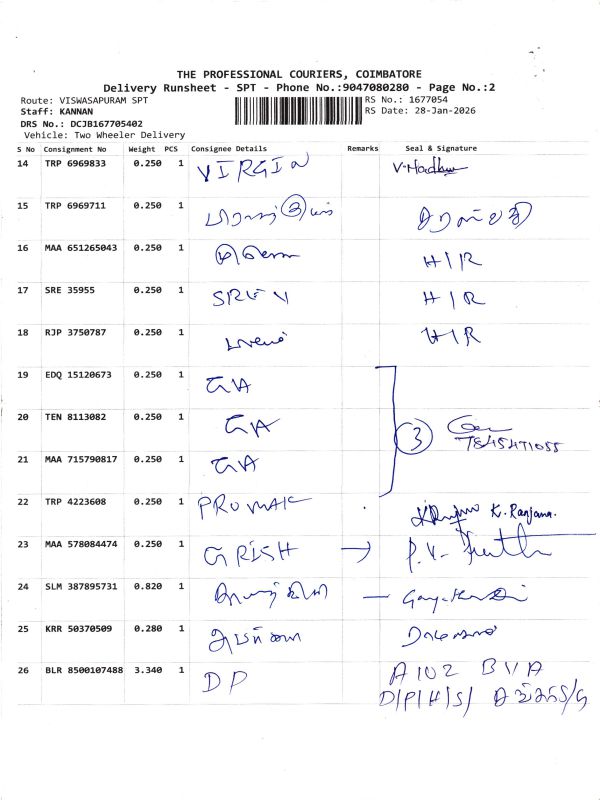 THE PROFESSIONAL COURIERS, COIMBATORE
Delivery Runsheet - SPT - Phone No.:9047080280 - Page No.:2
Route: VISWASAPURAM SPT
RS No.: 1677054
Staff: KANNAN
RS Date: 28-Jan-2026
DRS No.: DCJB167705402
Vehicle: Two Wheeler Delivery
S No Consignment No Weight PCS Consignee Details Remarks Seal & Signature
14 TRP 6969833 0.250 1 VIRGIN
15 TRP 6969711 0.250 1
16 MAA 651265043 0.250 1 H/R
17 SRE 35955 0.250 1 H/R
18 RJP 3750787 0.250 1 H/R
19 EDQ 15120673 0.250 1 GA
20 TEN 8113082 0.250 1 GA 3
7845471055
21 MAA 715790817 0.250 1 GA
22 TRP 4223608 0.250 1 PROMAK K. Ranjana.
23 MAA 578084474 0.250 1 GRISH → P.V.
24 SLM 387895731 0.820 1
25 KRR 50370509 0.280 1
26 BLR 8500107488 3.340 1 DP A102 BVA
D/P/H/S/